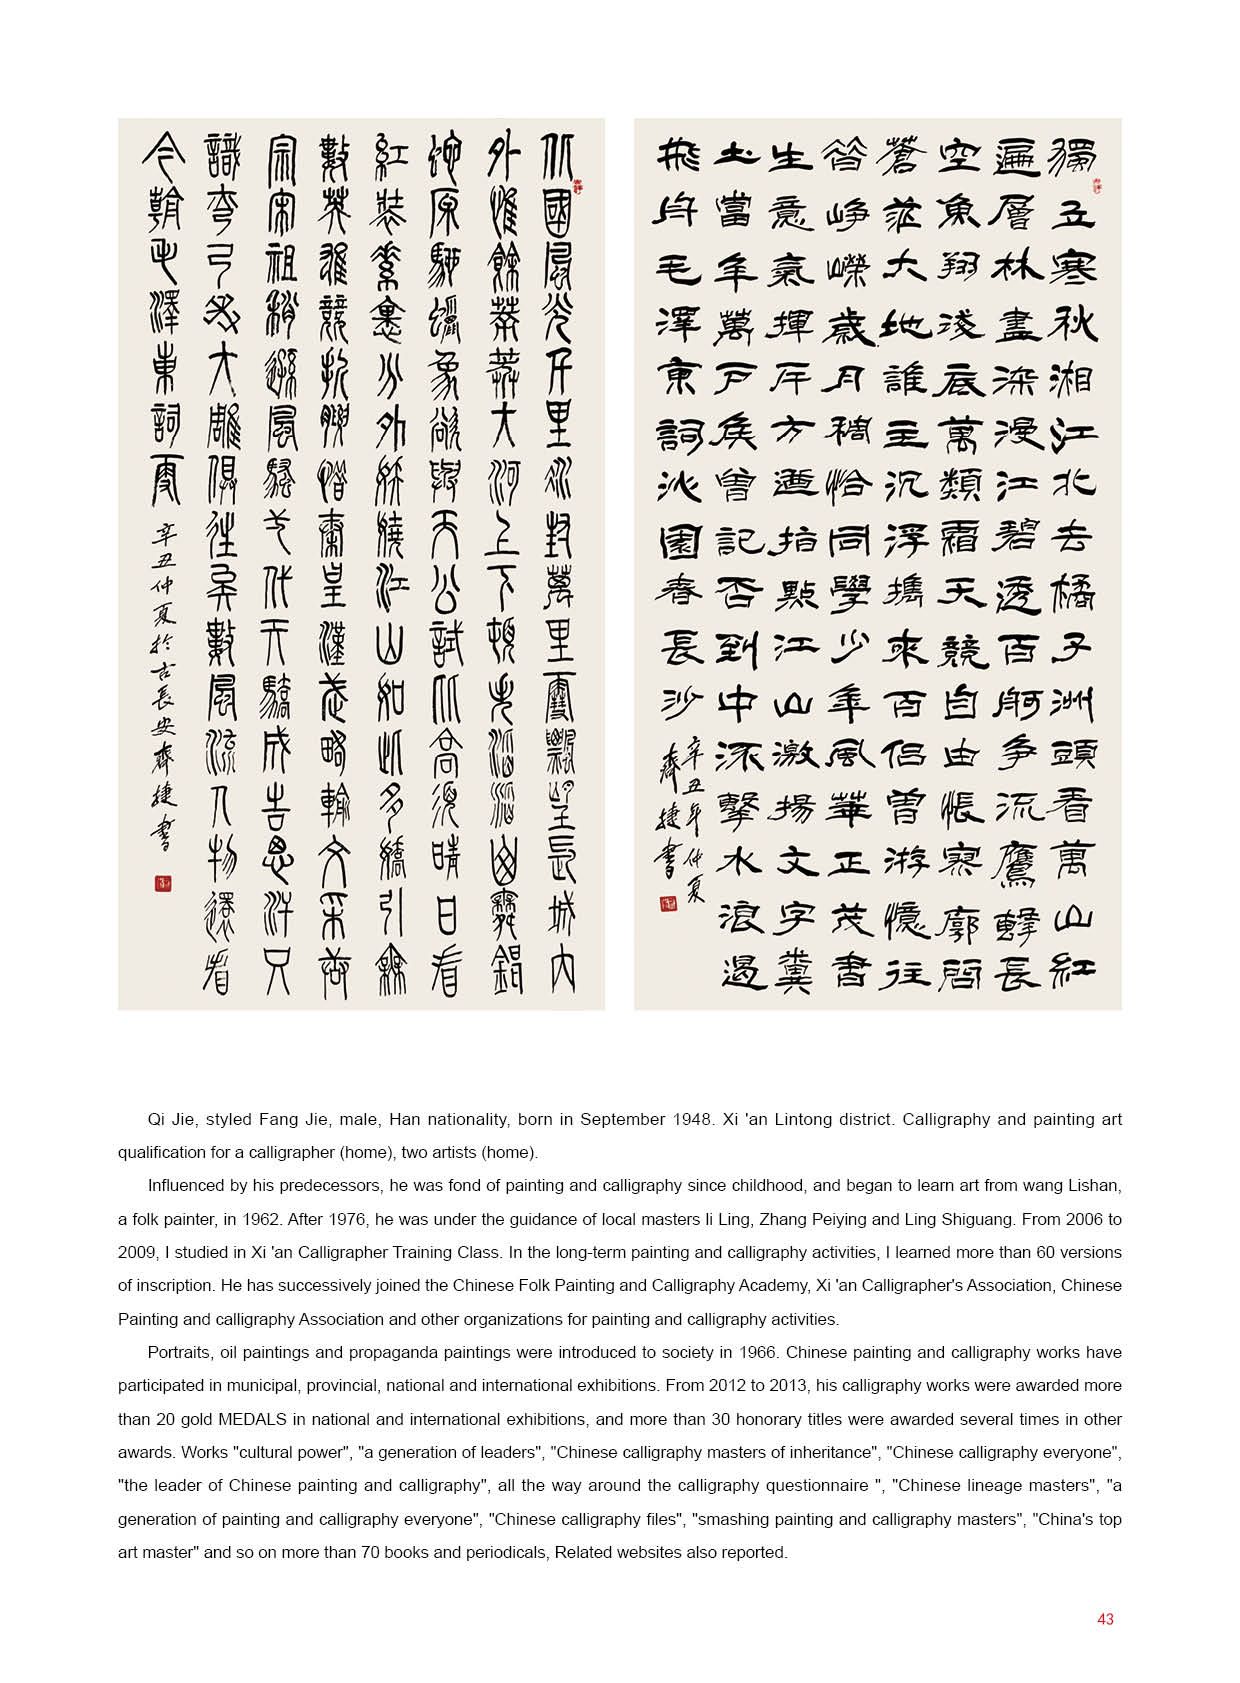 北國風光千里冰封萬里雪飄望長城內
外惟餘莽莽大河上下頓失滔滔山舞銀
蛇原馳蠟象欲與天公試比高須晴日看
紅裝素裹分外妖嬈江山如此多嬌引無
數英雄競折腰惜秦皇漢武略輸文采唐
宗宋祖稍遜風騷弌代天驕成吉思汗只
識彎弓射大雕俱往矣數風流人物還看
今朝毛澤東詞雪
辛丑仲夏於古長安齊捷書
獨立寒秋湘江北去橘子洲頭看萬山紅
遍層林盡染漫江碧透百舸爭流鷹擊長
空魚翔淺底萬類霜天競自由悵寥廓問
蒼茫大地誰主沉浮攜來百侶曾游憶往
昔崢嶸歲月稠恰同學少年風華正茂書
生意氣揮斥方遒指點江山激揚文字糞
土當年萬戶侯曾記否到中流擊水浪遏
飛舟毛澤東詞沁園春長沙
辛丑年仲夏
齊捷書
Qi Jie, styled Fang Jie, male, Han nationality, born in September 1948. Xi 'an Lintong district. Calligraphy and painting art
qualification for a calligrapher (home), two artists (home).
Influenced by his predecessors, he was fond of painting and calligraphy since childhood, and began to learn art from wang Lishan,
a folk painter, in 1962. After 1976, he was under the guidance of local masters li Ling, Zhang Peiying and Ling Shiguang. From 2006 to
2009, I studied in Xi 'an Calligrapher Training Class. In the long-term painting and calligraphy activities, I learned more than 60 versions
of inscription. He has successively joined the Chinese Folk Painting and Calligraphy Academy, Xi 'an Calligrapher's Association, Chinese
Painting and calligraphy Association and other organizations for painting and calligraphy activities.
Portraits, oil paintings and propaganda paintings were introduced to society in 1966. Chinese painting and calligraphy works have
participated in municipal, provincial, national and international exhibitions. From 2012 to 2013, his calligraphy works were awarded more
than 20 gold MEDALS in national and international exhibitions, and more than 30 honorary titles were awarded several times in other
awards. Works "cultural power", "a generation of leaders", "Chinese calligraphy masters of inheritance", "Chinese calligraphy everyone",
"the leader of Chinese painting and calligraphy", all the way around the calligraphy questionnaire ", "Chinese lineage masters", "a
generation of painting and calligraphy everyone", "Chinese calligraphy files", "smashing painting and calligraphy masters", "China's top
art master" and so on more than 70 books and periodicals, Related websites also reported.
43